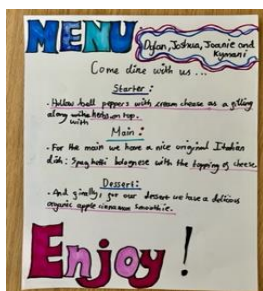 MENU
Dylan, Joshua, Joanie and
Kymani
Come dine with us ...
Starter :
· Hollow bell peppers with cream cheese as a filling
along with herbs on top.
with
Main :
· For the main we have a nice original Italian
dish: Spaghetti bolognese with the topping of cheese.
Dessert:
· And finally, for our dessert we have a delicious
organic apple cinnamon smoothie.
Enjoy!